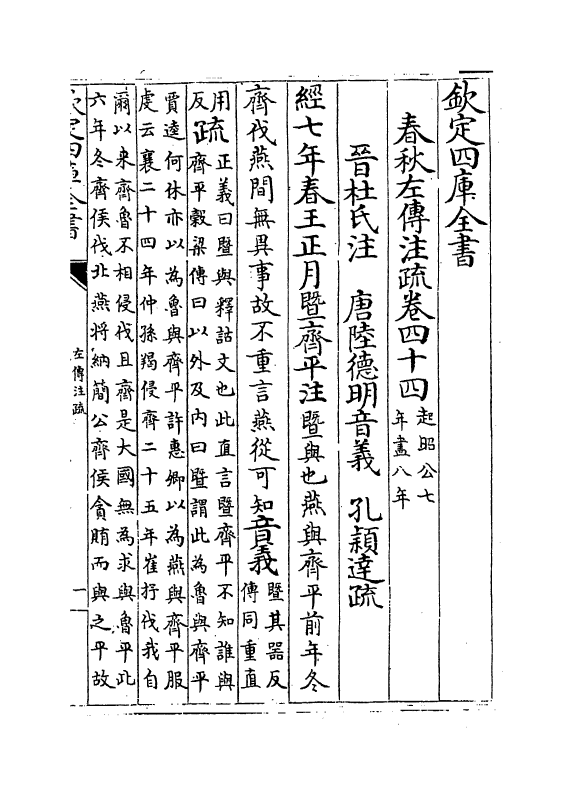 欽定四庫全書
春秋左傳注疏卷四十四
起昭公七
年盡八年
晉杜氏注 唐陸德明音義 孔穎達疏
經七年春王正月暨齊平注暨與也燕與齊平前年冬
齊伐燕間無異事故不重言燕從可知音義
暨其器反
傳同重直
用
反
疏
正義曰暨與釋詁文也此直言暨齊平不知誰與
齊平穀梁傳曰以外及内曰暨謂此為魯與齊平
賈逵何休亦以為魯與齊平許惠卿以為燕與齊平服
虔云襄二十四年仲孫羯侵齊二十五年崔抒伐我自
爾以來齊魯不相侵伐且齊是大國無為求與魯平此
六年冬齊侯伐北燕將納簡公齊侯貪賄而與之平故
欽定四庫全書
左傳注疏
一